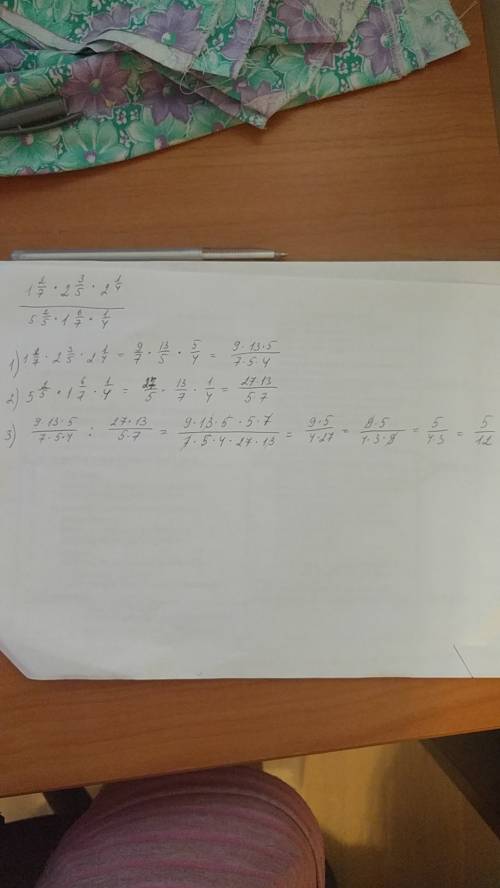 (1 2/7 · 2 3/5 · 2 1/4) / (5 2/5 · 1 6/7 · 1/4)
1) 1 2/7 · 2 3/5 · 2 1/4 = 9/7 · 13/5 · 5/4 = (9 · 13 · 5)/(7 · 5 · 4)
2) 5 2/5 · 1 6/7 · 1/4 = 27/5 · 13/7 · 1/4 = (27 · 13)/(5 · 7)
3) (9 · 13 · 5)/(7 · 5 · 4) : (27 · 13)/(5 · 7) = (9 · 13 · 5 · 5 · 7)/(7 · 5 · 4 · 27 · 13) = (9 · 5)/(4 · 27) = (9 · 5)/(4 · 3 · 9) = 5/(4 · 3) = 5/12